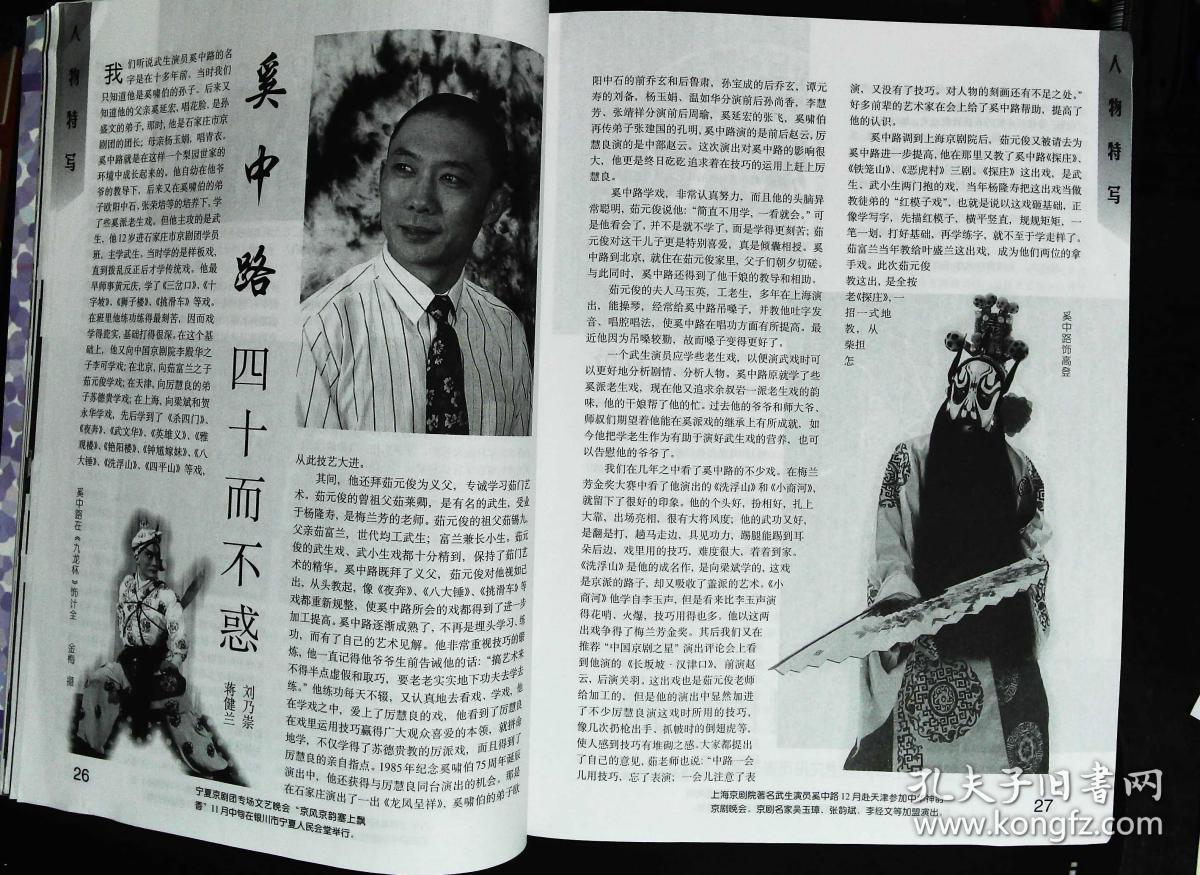 人物特写
奚中路四十而不惑
刘乃崇
蒋健兰
我们听说武生演员奚中路的名
字是在十多年前。当时我们
只知道他是奚啸伯的孙子。后来又
知道他的父亲奚延宏，唱花脸，是孙
盛文的弟子，那时，他是石家庄市京
剧团的团长；母亲杨玉娟，唱青衣。
奚中路就是在这样一个梨园世家的
环境中成长起来的。他自幼在他爷
爷的教导下，后来又在奚啸伯的弟
子欧阳中石，张荣培等的培养下，学
了些奚派老生戏。但他主攻的是武
生，他12岁进石家庄市京剧团学员
班，主学武生，当时学的是样板戏，
直到拨乱反正后才学传统戏。他最
早师事黄元庆，学了《三岔口》、《十
字坡》、《狮子楼》、《挑滑车》等戏。
在班里他练功练得最刻苦，因而戏
学得瓷实，基础打得很深。在这个基
础上，他又向中国京剧院李殿华之
子李可学戏；在北京，向茹富兰之子
茹元俊学戏；在天津，向厉慧良的弟
子苏德贵学戏；在上海，向梁斌和贺
永华学戏，先后学到了《杀四门》、
《夜奔》、《武文华》、《英雄义》、《雅
观楼》、《艳阳楼》、《钟馗嫁妹》、《八
大锤》、《洗浮山》、《四平山》等戏，
奚中路在《九龙杯》饰计全　金梅　摄
从此技艺大进。
其间，他还拜茹元俊为义父，专诚学习茹门艺
术。茹元俊的曾祖父茹莱卿，是有名的武生，受业
于杨隆寿，是梅兰芳的老师。茹元俊的祖父茹锡九，
父亲茹富兰，世代均工武生；富兰兼长小生。茹元
俊的武生戏、武小生戏都十分精到，保持了茹门艺
术的精华。奚中路既拜了义父，茹元俊对他视如己
出，从头教起，像《夜奔》、《八大锤》、《挑滑车》等
戏都重新规整，使奚中路所会的戏都得到了进一步
加工提高。奚中路逐渐成熟了，不再是埋头学习、练
功，而有了自己的艺术见解。他非常重视技巧的锻
炼，他一直记得他爷爷生前告诫他的话：“搞艺术来
不得半点虚假和取巧，要老老实实地下功夫去学去
练。”他练功每天不辍，又认真地去看戏、学戏，他
在学戏之中，爱上了厉慧良的戏，他看到了厉慧良
在戏里运用技巧赢得广大观众喜爱的本领，就拼命
地学，不仅学得了苏德贵教的厉派戏，而且得到了
厉慧良的亲自指点。1985年纪念奚啸伯75周年诞辰
演出中，他还获得与厉慧良同台演出的机会。那是
在石家庄演出了一出《龙凤呈祥》，奚啸伯的弟子欧
26
宁夏京剧团专场文艺晚会“京风京韵塞上飘
香”11月中旬在银川市宁夏人民会堂举行。
阳中石的前乔玄和后鲁肃，孙宝成的后乔玄，谭元
寿的刘备，杨玉娟、温如华分演前后孙尚香，李慧
芳、张靖祥分演前后周瑜，奚延宏的张飞，奚啸伯
再传弟子张建国的孔明，奚中路演的是前后赵云，厉
慧良演的是中部赵云。这次演出对奚中路的影响很
大，他更是终日矻矻追求着在技巧的运用上赶上厉
慧良。
奚中路学戏，非常认真努力，而且他的头脑异
常聪明，茹元俊说他：“简直不用学，一看就会。”可
是他看会了，并不是就不学了，而是学得更刻苦；茹
元俊对这干儿子更是特别喜爱，真是倾囊相授。奚
中路到北京，就住在茹元俊家里，父子们朝夕切磋。
与此同时，奚中路还得到了他干娘的教导和相助。
茹元俊的夫人马玉英，工老生，多年在上海演
出，能操琴，经常给奚中路吊嗓子，并教他吐字发
音、唱腔唱法，使奚中路在唱功方面有所提高。最
近他因为吊嗓较勤，故而嗓子变得更好了。
一个武生演员应学些老生戏，以便演武戏时可
以更好地分析剧情、分析人物。奚中路原就学了些
奚派老生戏，现在他又追求余叔岩一派老生戏的韵
味，他的干娘帮了他的忙。过去他的爷爷和师大爷、
师叔们期望着他能在奚派戏的继承上有所成就，如
今他把学老生作为有助于演好武生戏的营养，也可
以告慰他的爷爷了。
我们在几年之中看了奚中路的不少戏。在梅兰
芳金奖大赛中看了他演出的《洗浮山》和《小商河》，
就留下了很好的印象。他的个头好，扮相好，扎上
大靠，出场亮相，很有大将风度；他的武功又好，
是翻是打，趟马走边，具见功力，踢腿能踢到耳
朵后边，戏里用的技巧，难度很大，看着到家。
《洗浮山》是他的成名作，是向梁斌学的，这戏
是京派的路子，却又吸收了盖派的艺术。《小
商河》他学自李玉声，但是看来比李玉声演
得花哨，火爆，技巧用得也多。他以这两
出戏争得了梅兰芳金奖。其后我们又在
推荐“中国京剧之星”演出评论会上看
到他演的《长坂坡·汉津口》，前演赵
云，后演关羽。这出戏也是茹元俊老师
给加工的，但是他的演出中显然加进
了不少厉慧良演这戏时所用的技巧，
像几次扔枪出手、抓帔时的倒翅虎等，
使人感到技巧有堆砌之感。大家都提出
了自己的意见，茹老师也说：“中路一会
儿用技巧，忘了表演；一会儿注意了表
演，又没有了技巧。对人物的刻画还有不足之处。”
好多前辈的艺术家在会上给了奚中路帮助，提高了
他的认识。
奚中路调到上海京剧院后，茹元俊又被请去为
奚中路进一步提高，他在那里又教了奚中路《探庄》、
《铁笼山》、《恶虎村》三剧。《探庄》这出戏，是武
生、武小生两门抱的戏，当年杨隆寿把这出戏当做
教徒弟的“红模子戏”，也就是说以这戏砸基础，正
像学写字，先描红模子，横平竖直，规规矩矩，一
笔一划，打好基础，再学练字，就不至于学走样了。
茹富兰当年教给叶盛兰这出戏，成为他们两位的拿
手戏。此次茹元俊
教这出，是全按
老《探庄》，一
招一式地
教，从
柴担
怎
奚中路饰高登
人物特写
上海京剧院著名武生演员奚中路12月赴天津参加中
京剧晚会。京剧名家吴玉璋、张韵斌、李经文等加盟演出。
27
孔夫子旧书网
www.kongfz.com